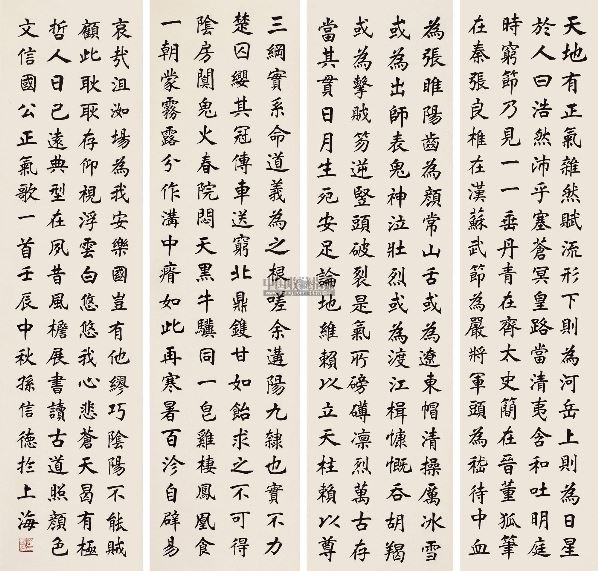 天地有正氣雜然賦流形下則為河岳上則為日星
於人曰浩然沛乎塞蒼冥皇路當清夷含和吐明庭
時窮節乃見一一垂丹青在齊太史簡在晉董狐筆
在秦張良椎在漢蘇武節為嚴將軍頭為嵇待中血
為張睢陽齒為顏常山舌或為遼東帽清操厲冰雪
或為出師表鬼神泣壯烈或為渡江楫慷慨吞胡羯
或為擊賊笏逆豎頭破裂是氣所磅礴凛烈萬古存
當其貫日月生死安足論地維賴以立天柱賴以尊
三綱實系命道義為之根嗟余遘陽九隸也實不力
楚囚纓其冠傳車送窮北鼎鑊甘如飴求之不可得
陰房闃鬼火春院悶天黑牛驥同一皂雞棲鳳凰食
一朝蒙霧露分作溝中瘠如此再寒暑百沴自辟易
哀哉沮洳場為我安樂國豈有他繆巧陰陽不能賊
顧此耿耿存仰視浮雲白悠悠我心悲蒼天曷有極
哲人日已遠典型在夙昔風檐展書讀古道照顏色
文信國公正氣歌一首壬辰中秋孫信德於上海